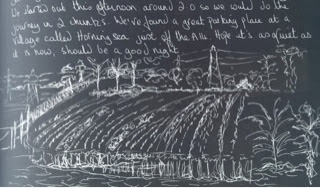 started out this afternoon around 2.0 so we would do the
journey in 2 chunks. We've found a great parking place at a
village called Horningsea just off the A14. Hope it's as quiet as
it is now, should be a good night.